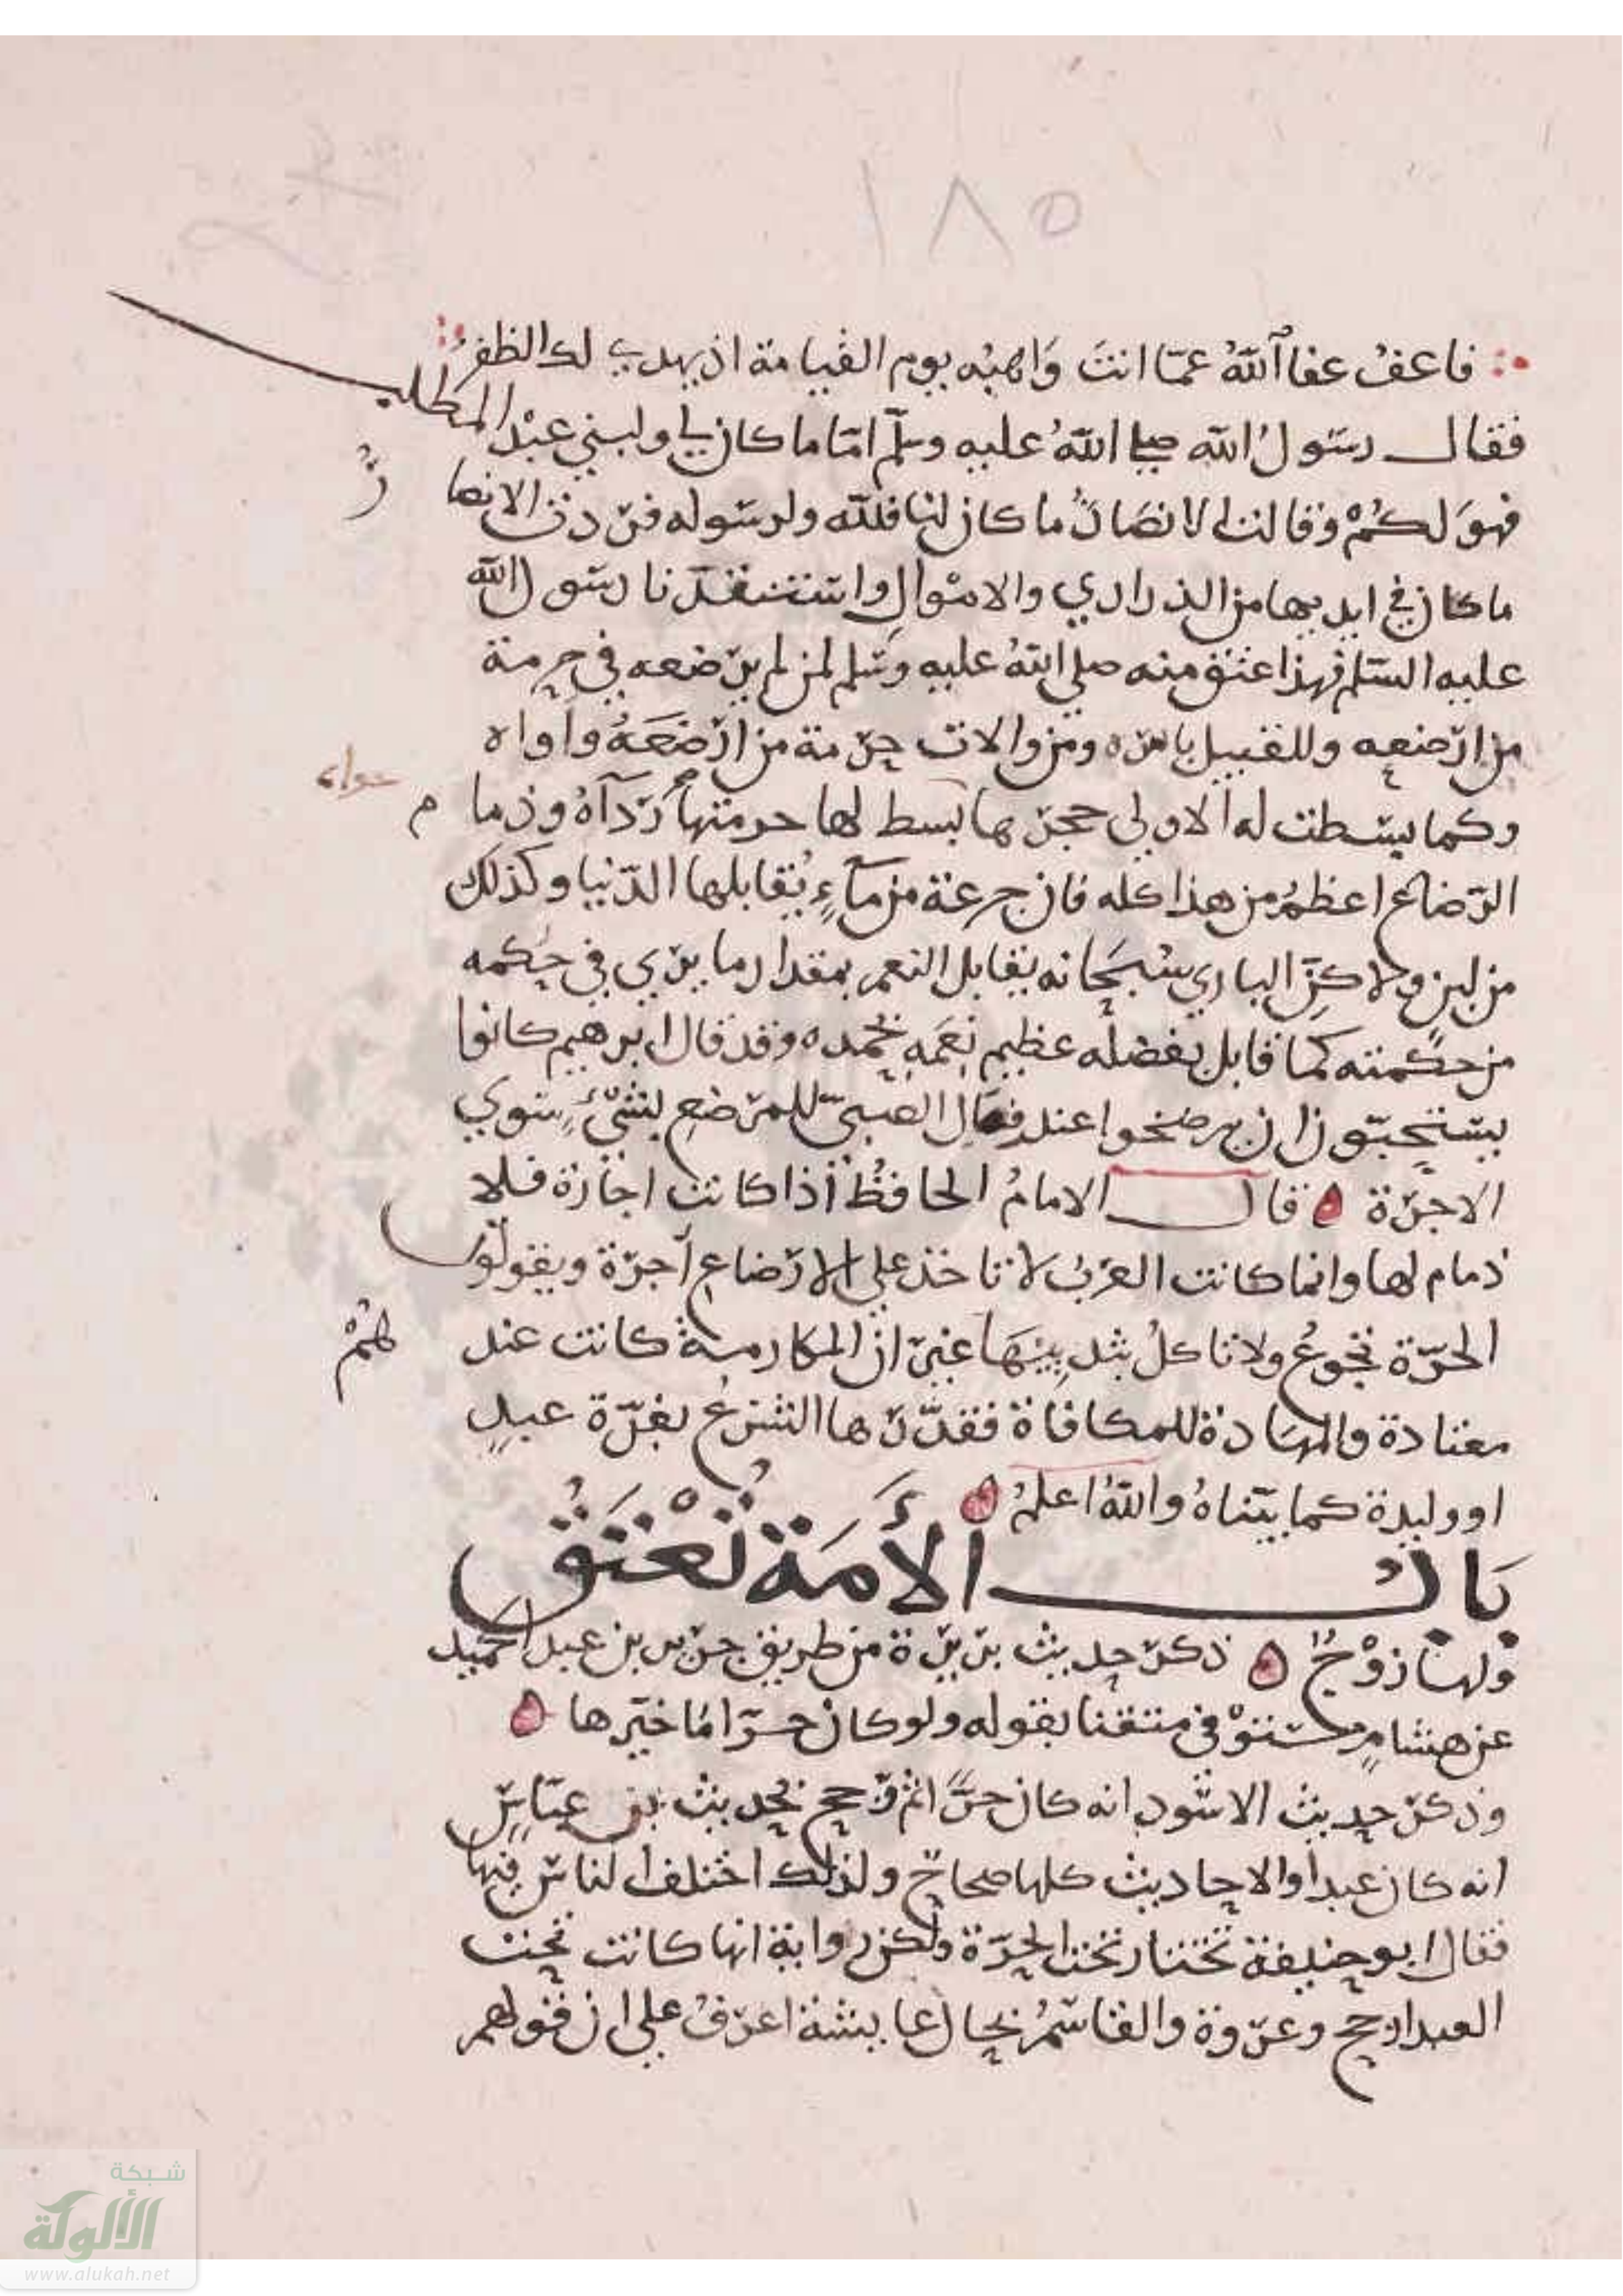 ١٨٥
فاعف عفا اللهُ عمّا انتَ وَاهبُه يوم القيامة اذ يهدي لك الظفرُ
فقال رسَول الله صلى اللهُ عليه وسلّم امّا ما كان لي ولبني عبْد المطلب
فهوَ لكُمْ وقالت الانصَارُ ما كان لنا فللّه ولرسوله فردّت الانصارُ
ما كان في ايديها من الذراري والامْوالِ واستنقذنا رسَول الله
عليه السّلم فهذا عتق منه صلى اللهُ عليه وسَلم لمن لم يرضعه في حرمة
من ارضعه وللقبيل باسره ومن والات حرمة من ارْضَعَهُ واواه
وكما بسَطت له الاولى حجرها بَسط لها حرمتها رَدَآهُ وذما م
الرّضاع اعظمُ من هذا كله فان جرعة من مآءٍ يُقابلها الدّنيا وكذلك
من لبن ولاكنّ الباري سُبحَانه يقابل النعم بمقدار ما يرى في حُكمه
من حكمته كما قابل بفضله عظيم نِعَمِهِ بحَمده وقد قال ابرهيم كانوا
يسْتحبّون ان يرضخوا عند فصَال الصبيّ للمرْضعِ بشَيْءٍ سوي
الاجرَة قال الامامُ الحافظُ اذا كانت اجارَة فلا
ذمام لها وانما كانت العرَبُ لا تاخذ على الارْضاعِ اجرَة ويقولون
الحُرّة تجُوعُ ولا تاكلُ بثدييْهَا غيرَ ان المكارمة كانت عندهُمْ
معتادة والمهَاداة للمكافاة فقدّرَها الشرْعُ بغرّة عبدٍ
او وليدة كما بيّناهُ واللهُ اعلمُ
بَابُ الأَمَة تُعْتَقُ
ولهَا زوْجٌ ذكرَ حديث برَيرَة من طريق جرَير بن عبد الحميد
عن هشامٍ مستوْفى متقنا بقوله ولو كان حرّا مَا خيّرها
وذكرَ حديث الاسْود انه كان حرًّا ثم رَجح بحُديث بن عبّاسٍ
انه كان عبدا والاحاديث كلها صحاحٌ ولذلك اختلف الناسُ فيها
فقال ابو حنيفة تختار تحت الحرّة ولكن رواية انها كانت تحت
العبد ارجح وعرْوة والقاسمُ بحَال عايشة اعرَفُ على ان قولهم